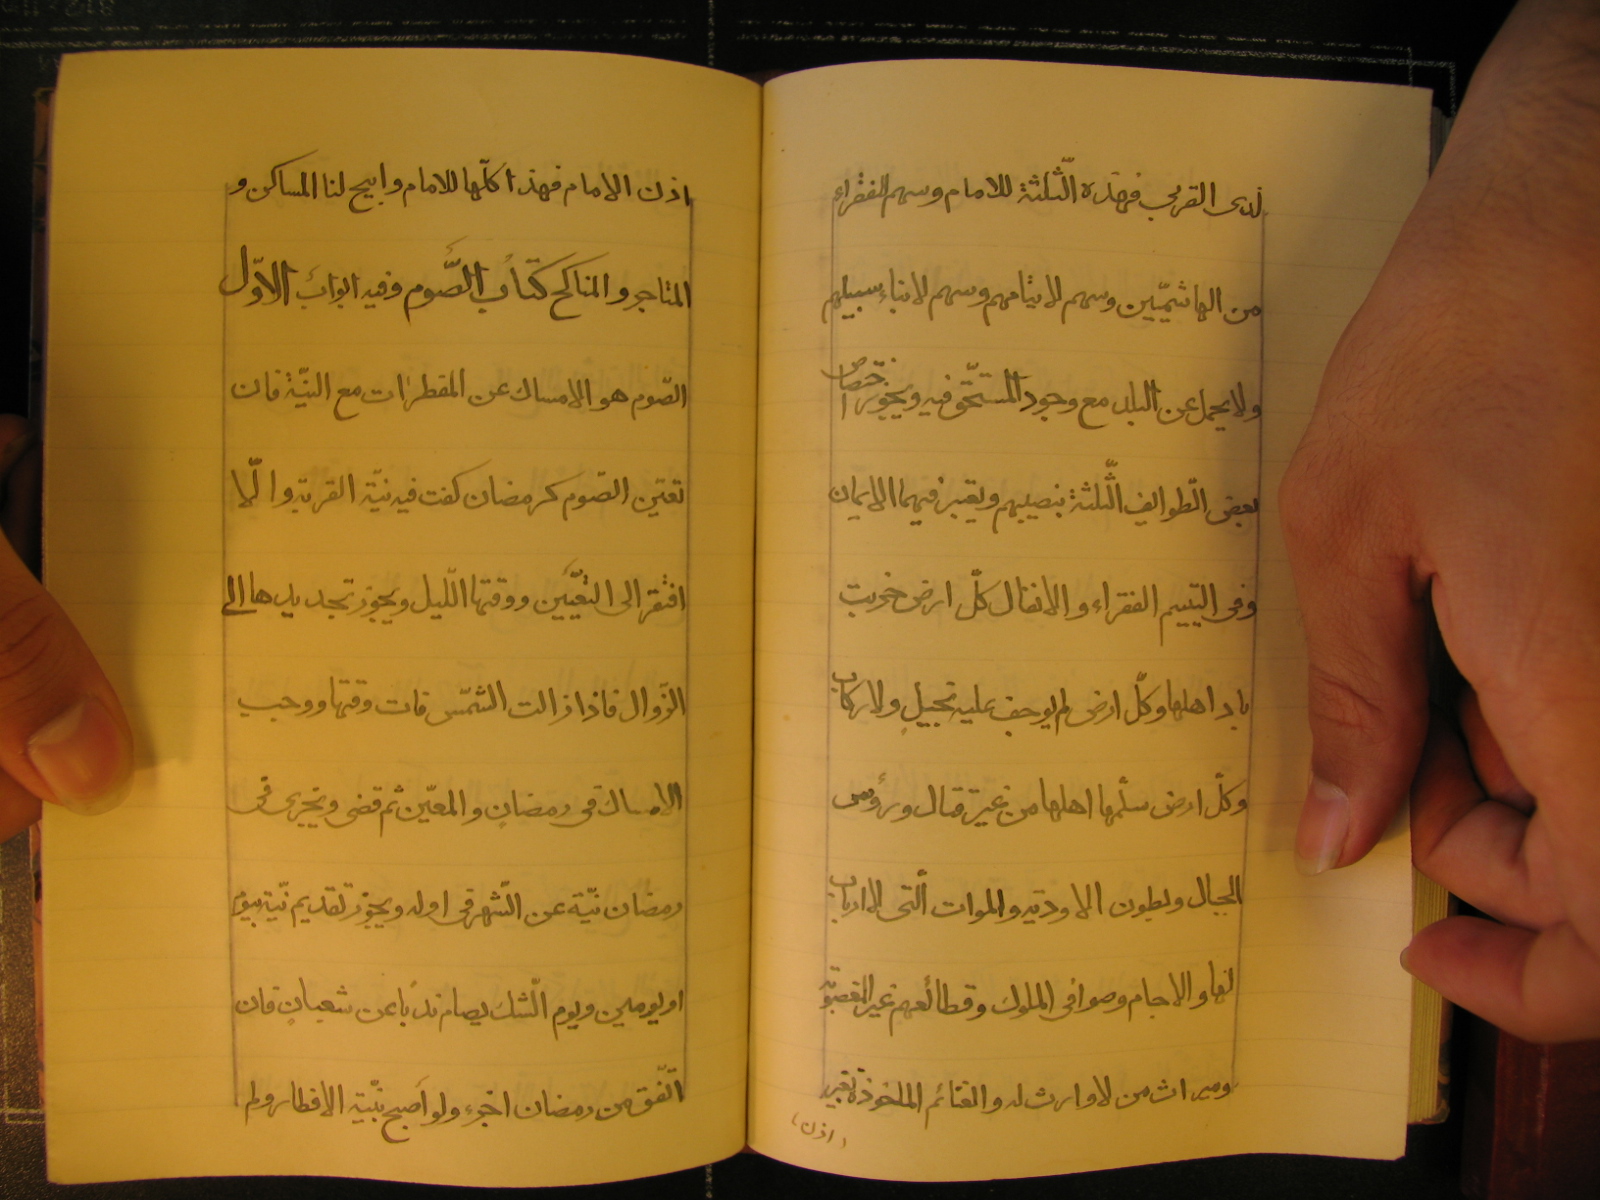 لذى القربى فهذه الثّلثة للامام وسهم لفقراء
من الهاشميّين وسهم لايتامهم وسهم لابناء سبيلهم
ولا يحمل عن البلد مع وجود المستحّق فيه ويجوز اختصاص
بعض الطّوايف الثّلثة بنصيبهم ويعتبر فيهما الايمان
وفى اليتيم الفقراء والانفال كلّ ارض خربت
باد اهلها وكلّ ارض لم يوجف عليه بخيل ولا ركاب
وكلّ ارض سلّمها اهلها من غير قتال ورؤس
الجبال وبطون الاودية والموات الّتى لا ارباب
لها والاجام وصوافى الملوك وقطائعهم غير المغصوبة
وميراث من لا وارث له والغنائم الماخوذة بغير
(اذن)
اذن الامام فهذا كلّها للامام وابيح لنا المساكن و
المتاجر والمناكح كتاب الصَّوم وفيه ابوابٌ الاوّل
الصّوم هو الامساك عن المفطرات مع النيّة فان
تعيّن الصّوم كرمضان كفت فيه نيّة القربة والّا
افتقر الى التّعيّين ووقتها اللّيل ويجوز تجديدها الى
الزّوال فاذا زالت الشّمس فات وقتها ووجب
الامساك فى رمضان والمعيّن ثم قضى ويجزى فى
رمضان نيّة عن الشّهر فى اوله ويجوز تقديم نيّة بيوم
او يومين ويوم الشّك يصام ندبًا عن شعبان فان
اتّفق من رمضان اجزء ولو اصبح بنيّة الافطار ولم